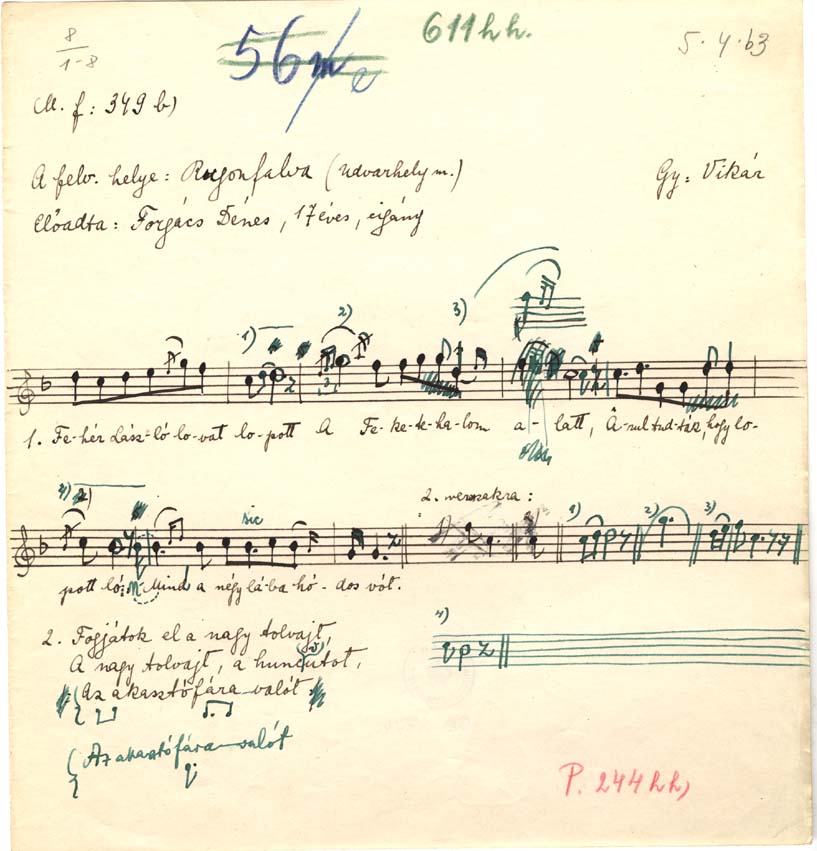 8
1-8
56
611 h h.
5. 4. 63
M. f: 349 b)
A felv. helye: Rugonfalva (Udvarhely m.)
Gy: Vikár
Előadta: Forgács Dénes, 17 éves, cigány
1) 2) 3)
1. Fe-hér Lász-ló lo-vat lo-pott A Fe-ke-te-ha-lom a-latt,
hogy lo-
sic
2. verszakra:
1) 2) 3)
pott ló: Mind a négy lá-ba hó-dos vót.
4)
2. Fogjátok el a nagy tolvajt,
A nagy tolvajt, a huncutot,
Az akasztófára valót
Az akasztófára valót
P. 244 h h)